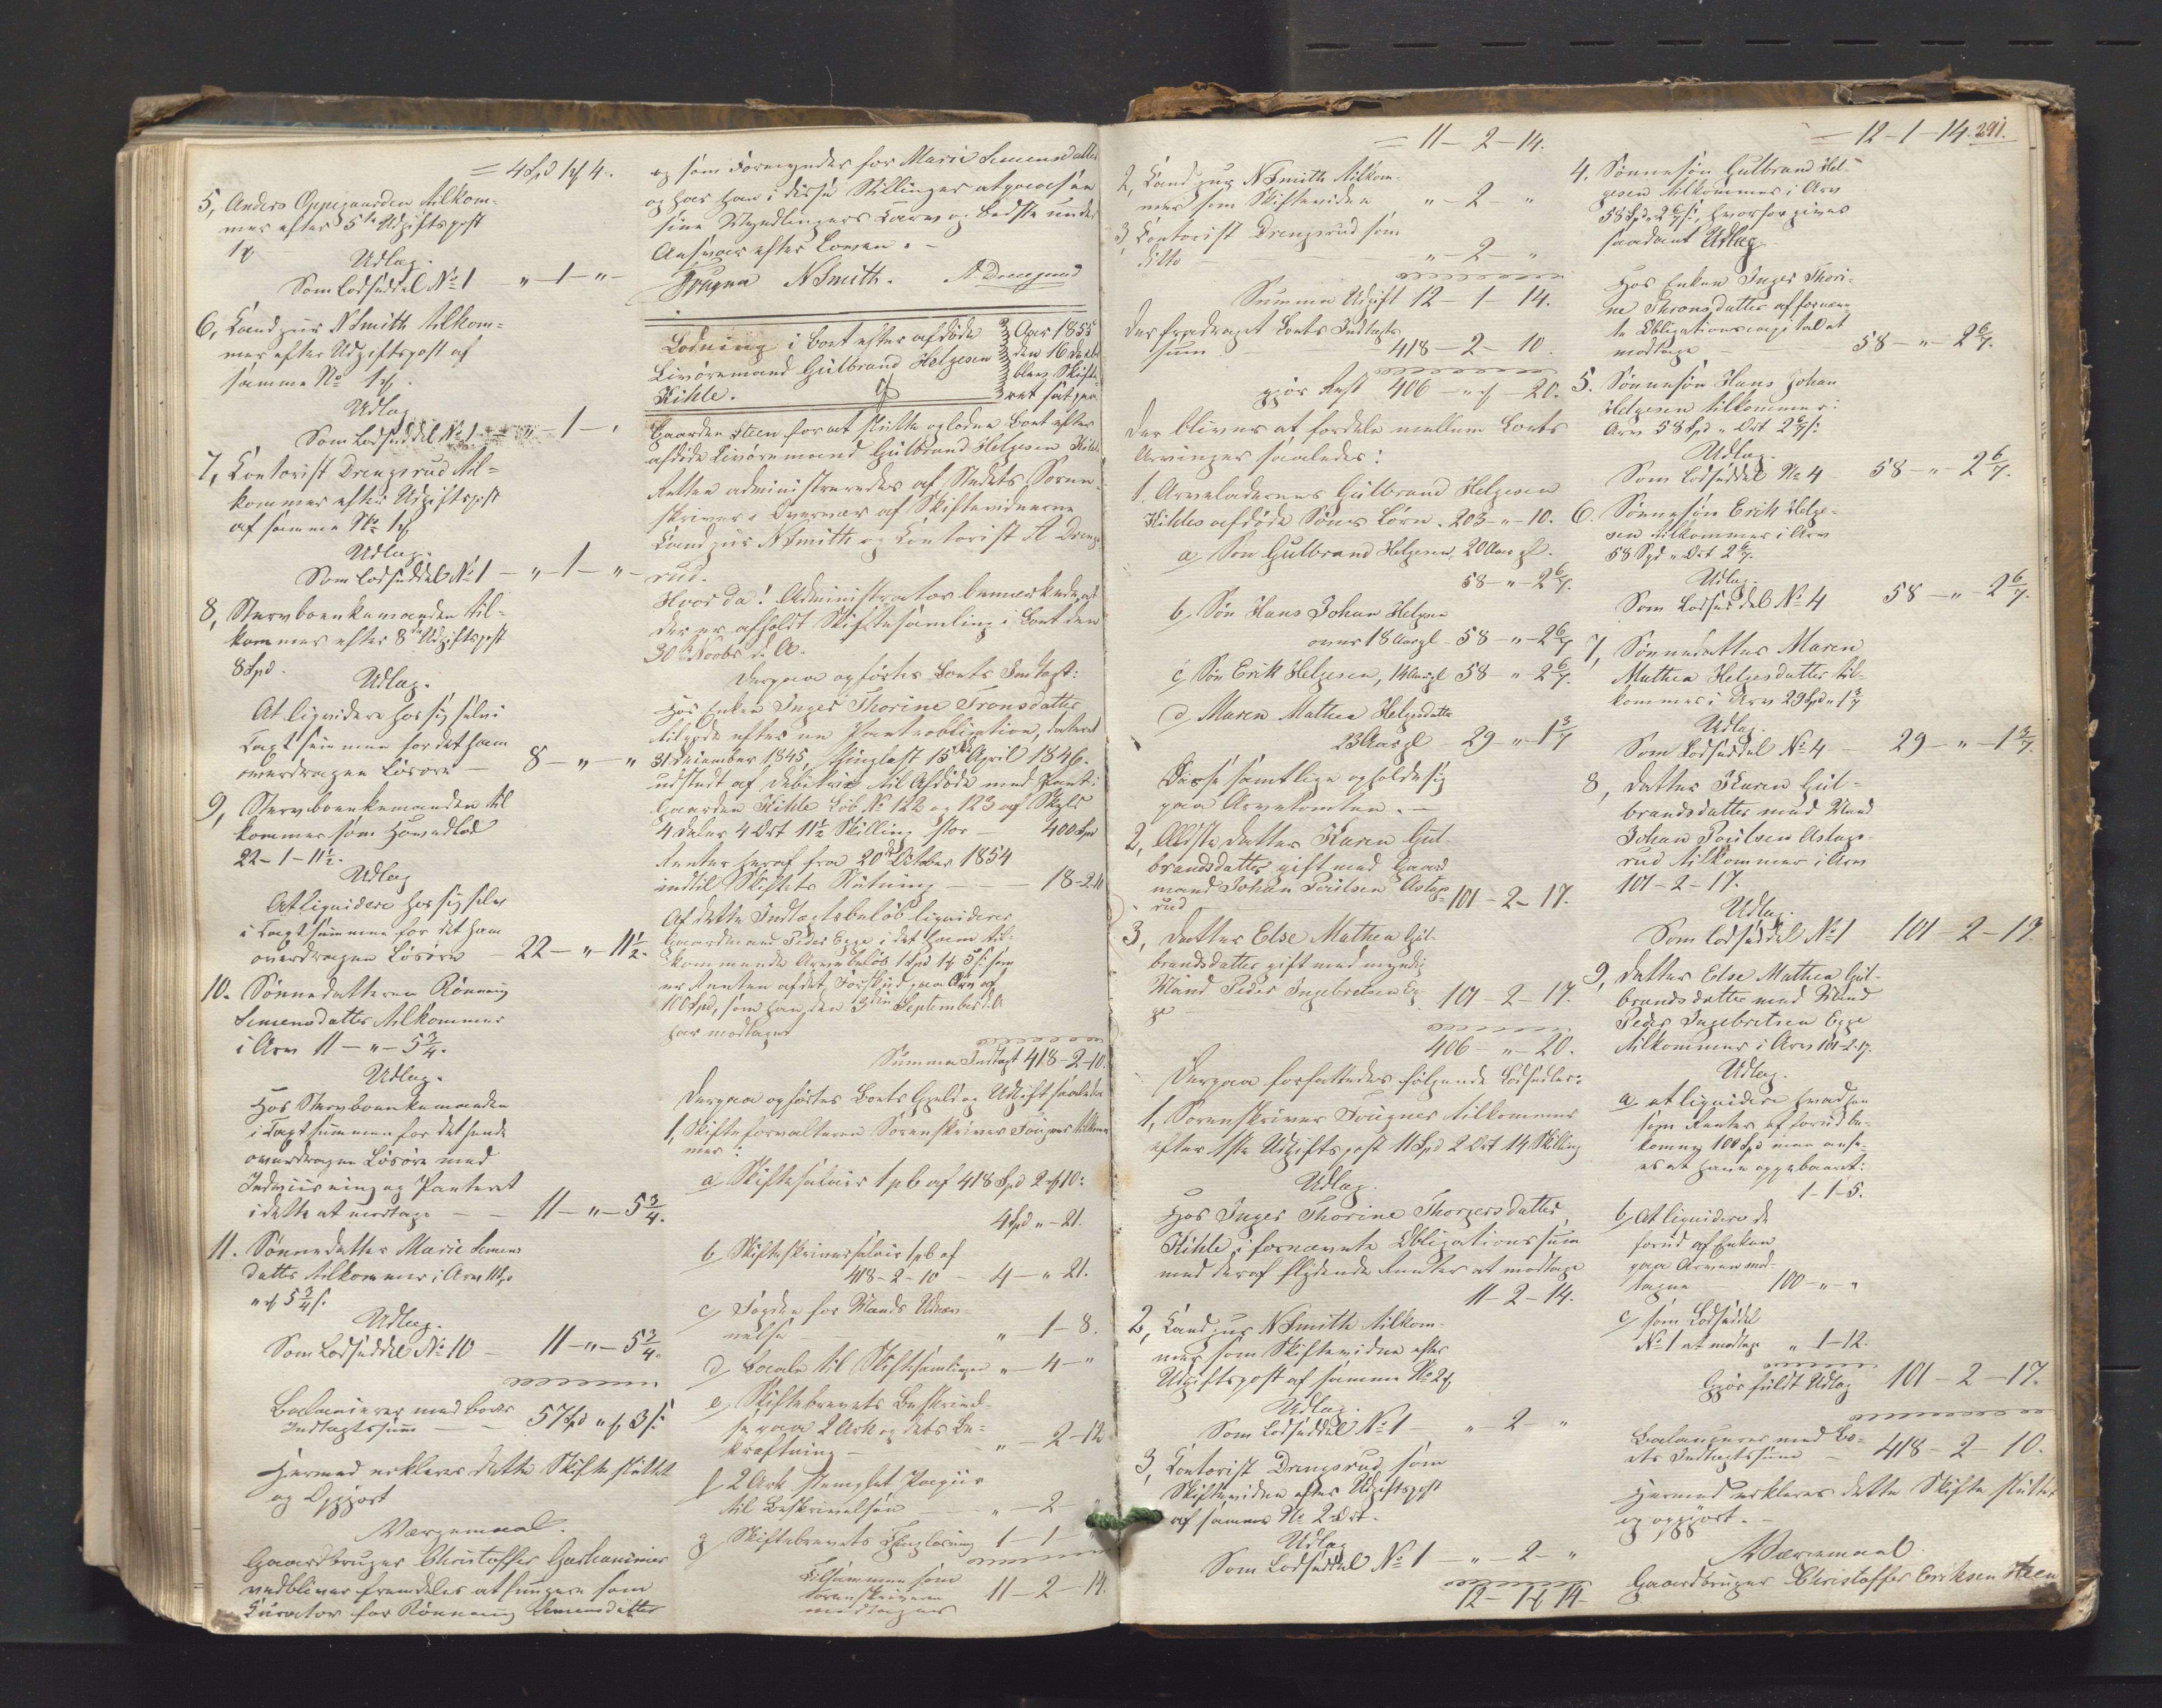 = 4 Spd 1 ß 4.
5, Anders Oppegaarden tilkom-
mer efter 5te Udgiftspost
1 ß
Udlæg.
Som Lodseddel No 1 " - 1 - "
6, Landzur N Smith tilkom-
mer efter Udgiftspost af
samme No 1 ß.
Udlæg
Som Lodseddel No 1 - " - 1 - "
7, Contorist Drengsrud til-
kommer efter Udgiftspost
af samme No 1 ß
Udlæg.
Som Lodseddel No 1 - " - 1 - "
8, Stervboenkemanden til-
kommer efter 8de Udgiftspost
8 Spd.
Udlæg.
At liqvidere hos sig selv i
Taxtsummen for det ham
overdragne Løsøre - 8 - " - "
9, Stervboenkemanden til
kommer som Hovedlod
22 - 1 - 11½.
Udlæg
At liqvidere hos sig selv
i Taxtsummen for det ham
overdragne Løsøre - 22 - " - 11½.
10. Sønnedatteren Rønnaug
Simensdatter tilkommer
i Arv 11 - " - 5¾.
Udlæg.
Hos Stervboenkemanden
i Taxtsummen for det hende
overdragne Løsøre med
Indviisning og Panteret
i dette at modtage - - 11 - " - 5¾.
11. Sønnedatter Marie Simens
datter tilkommer i Arv 11 Spd
" ß 5¾ s.
Udlæg.
Som Lodseddel No 10 - 11 - " - 5¾.
Balancerer med Boets
Indtægtssum - - 57 Spd " ß 3 s.
Hermed erklæres dette Skifte sluttet
og Opgjort
Værgemaal.
Gaardbruger Christoffer
vedbliver fremdeles at fungere som
Curator for Rønnaug Simensdatter
og som Formynder for Marie Simensdatter
og har han i disse Stillinger at paasee
sine Myndlingers Tarv og Bedste under
Ansvar efter Loven. -
Fougner N Smith. A Drengsrud
Lodning i Boet efter afdøde
Livøremand Gulbrand Helgesen
Kihle.
Aar 1855
den 16 Decbr
blev Skifte-
ret sat paa
Gaarden Steen for at slutte og lodne Boet efter
afdøde Livøremand Gulbrand Helgesen Kihle
Retten administreredes af Stedets Soren-
skriver i Overvær af Skiftevidnerne
Landzur N Smith og Contorist A Drengs
rud.
Hvor da! Administrator bemærkede, at
der er afholdt Skiftesamling i Boet den
30 Novbr d. A.
Derpaa opførtes Boets Indtægt:
Hos Enken Inger Thorine Tronsdatter
tilgode efter en Panteobligation, dateret
31 December 1845, thinglæst 15de April 1846.
udstedt af Debitrix til Afdøde med Pant i
Gaarden Kihle Løb No 122 og 123 af Skyld
4 Daler 4 Ort 11½ Skilling stor - 400 Spd
Renter heraf fra 20de October 1854
indtil Skiftets Slutning - - - 18-2-10
Af dette Indtægtsbeløb liqviderer
Gaardmand Peder Egge i det ham til-
kommende Arvebeløb 1 Spd 1 ß 5 s. som
er Renten af det Forskud paa Arv af
100 Spd, som han den September d. A
har modtaget
Summa Indtægt 418-2-10.
Derpaa opførtes Boets Gjeld og Udgift saaledes
1, Skifteforvalteren Sorenskriver Fougner tilkom-
mer
a, Skiftesalair 1 pC af 418 Spd 2 ß 10:
4 Spd " - 21.
b, Skifteskriversalair 1 pC af
418-2-10 - 4 - " 21.
c, Fogden for Mænds Udnæv-
nelse - " - 1 - 8.
d, Locale til Skiftesamlingen " - 4 - "
e, Skiftebrevets Beskrivel-
se paa 2 Ark og dets Be-
kræftning - " - 2 - 12
f, 2 Ark stemplet Papiir
til Beskrivelsen - " - 2 - "
g, Skiftebrevets Thinglæsning 1 - 1 - "
Tilsammen som
Sorenskriveren 11 - 2 - 14.
modtager
= 11 - 2 - 14.
2, Landzur N Smith tilkom-
mer som Skiftevidne " - 2 - "
3, Contorist Drengsrud som
ditto " - 2 - "
Summa Udgift 12 - 1 - 14.
der fradraget Boets Indtægts
sum 418 - 2 - 10.
gjør Rest 406 - " ß - 20.
der bliver at fordele mellem Boets
Arvinger saaledes:
1. Arveladerens Gulbrand Helgesen
Kihles afdøde Søns Børn. 203 - " - 10.
a, Søn Gulbrand Helgesen, 20 Aar gl.
58 - " - 2 6/7.
b, Søn Hans Johan Helgesen
over 18 Aar gl. - 58 - " - 2 6/7
c, Søn Erik Helgesen, 14 Aar gl 58 - " 2 6/7.
d, Maren Mathea Helgesdatter
23 Aar gl - 29 - " - 1 3/7
Disse samtlige opholde sig
paa Arvetomten. -
2, Ældste Datter Karen Gul-
brandsdatter gift med Gaard
mand Johan Poulsen Aslags-
rud 101 - 2 - 17.
3, Datter Else Mathea Gul-
brandsdatter gift med myndig
Mand Peder Ingebretsen Eg
ge 101 - 2 - 17.
406 - " - 20.
Derpaa forfattedes følgende Lodsedler:
1, Sorenskriver Fougner tilkommer
efter 1ste Udgiftspost 11 Spd 2 Ort 14 Skilling
Udlæg.
Hos Inger Thorine Thorgersdatter
Kihle i fornævnte Obligationssum
med deraf flydende Renter at modtage
11 - 2 - 14.
2, Landzur N Smith tilkom-
mer som Skiftevidne efter
Udgiftspost af samme No 2 ß
Udlæg.
Som Lodseddel No 1 - " - 2 - "
3, Contorist Drengsrud som
Skiftevidne efter Udgiftspost
af samme No 2 Ort.
Udlæg
Som Lodseddel No 1 - " - 2 - "
12 - 1 ß 14
= 12 - 1 - 14. 291.
4. Sønnesøn Gulbrand Hel-
gesen tilkommer i Arv
58 Spd " 2 6/7 s, hvorfor gives
saadant Udlæg
Hos Enken Inger Thori-
ne Thronsdatter af fornævn-
te Obligationscapital at
modtage 58 - " - 2 6/7.
5. Sønnesøn Hans Johan
Helgesen tilkommer i
Arv 58 Spd " Ort 2 6/7 s.
Udlæg.
Som Lodseddel No 4 58 - " - 2 6/7.
6. Sønnesøn Erik Helge-
sen tilkommer i Arv
58 Spd " Ort 2 6/7.
Udlæg.
Som Lodseddel No 4 58 - " - 2 6/7.
7, Sønnedatter Maren
Mathea Helgesdatter til-
kommer i Arv 29 Spd " 1 3/7
Udlæg.
Som Lodseddel No 4 - 29 - " - 1 3/7.
8, Datter Karen Gul-
brandsdatter med Mand
Johan Poulsen Aslags-
rud tilkommer i Arv
101 - 2 - 17.
Udlæg.
Som Lodseddel No 1 101 - 2 - 17.
9, Datter Else Mathea Gul-
brandsdatter med Mand
Peder Ingebretsen Egge
tilkommer i Arv 101-2-17.
Udlæg.
a, at liqvidere hvad han
som Renter af forud be-
komne 100 Spd maa anse-
es at have oppebaaret:
1-1-5.
b, At liqvidere de
forud af Enken
paa Arven mod-
tagne 100 - " - "
c, som Lodseddel
No 1 at modtage " 1-12.
Gjør fuldt Udlæg 101 - 2 - 17.
Balancerer med Bo-
ets Indtægtssum - 418 - 2 - 10.
Hermed erklæres dette Skifte sluttet
og opgjort. -
Værgemaal.
Gaardbruger Christoffer Eriksen Steen